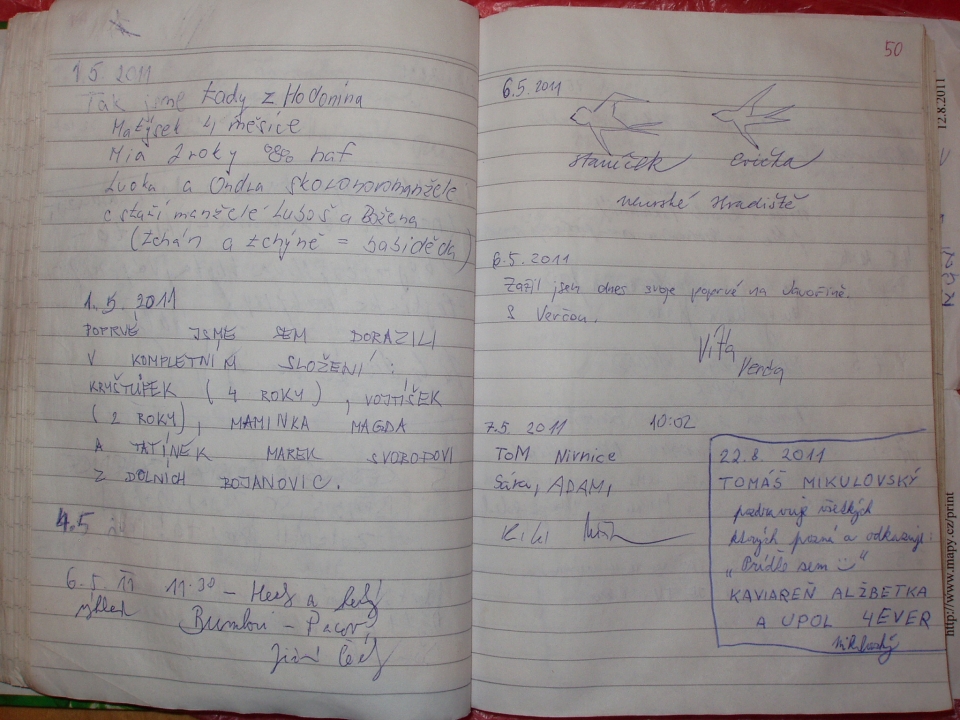 1.5. 2011
Tak jsme tady z Hodonína
Matýsek 4 měsíce
Mia 2 roky haf
Lucka a Ondra skoronovomanželé
a staří manželé Luboš a Božena
(tchán a tchýně = babiděda)
1.5.2011
POPRVÉ JSME SEM DORAZILI
V KOMPLETNÍM SLOŽENÍ:
KRYŠTŮFEK (4 ROKY), VOJTÍŠEK
(2 ROKY), MAMINKA MAGDA
A TATÍNEK MAREK SVOBODOVI
Z DOLNÍCH BOJANOVIC.
4.5
6.5. 11 11.30 – a
výhled – Pacov
Jiří
50
6.5.2011
Staníček Evička
Uherské Hradiště
6.5.2011
Zažil jsem dnes svoje poprvé na Javořině.
S Verčou.
Víťa
Verča
7.5 2011 10:02
TOM Nivnice
Sára, ADAM,
KIKI
22.8. 2011
TOMÁŠ MIKULOVSKÝ
pozdravuje všetkých
ktorých pozná a odkazuje:
„Príďte sem"
KAVIAREŇ ALŽBETKA
A UPOL 4EVER
Mikulovský
12.8.2011
http://www.mapy.cz/print